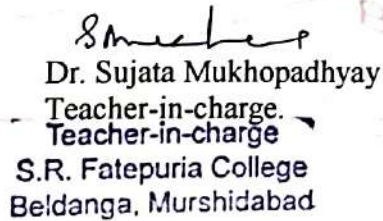 Dr. Sujata Mukhopadhyay
Teacher-in-charge.
Teacher-in-charge
S.R. Fatepuria College
Beldanga, Murshidabad